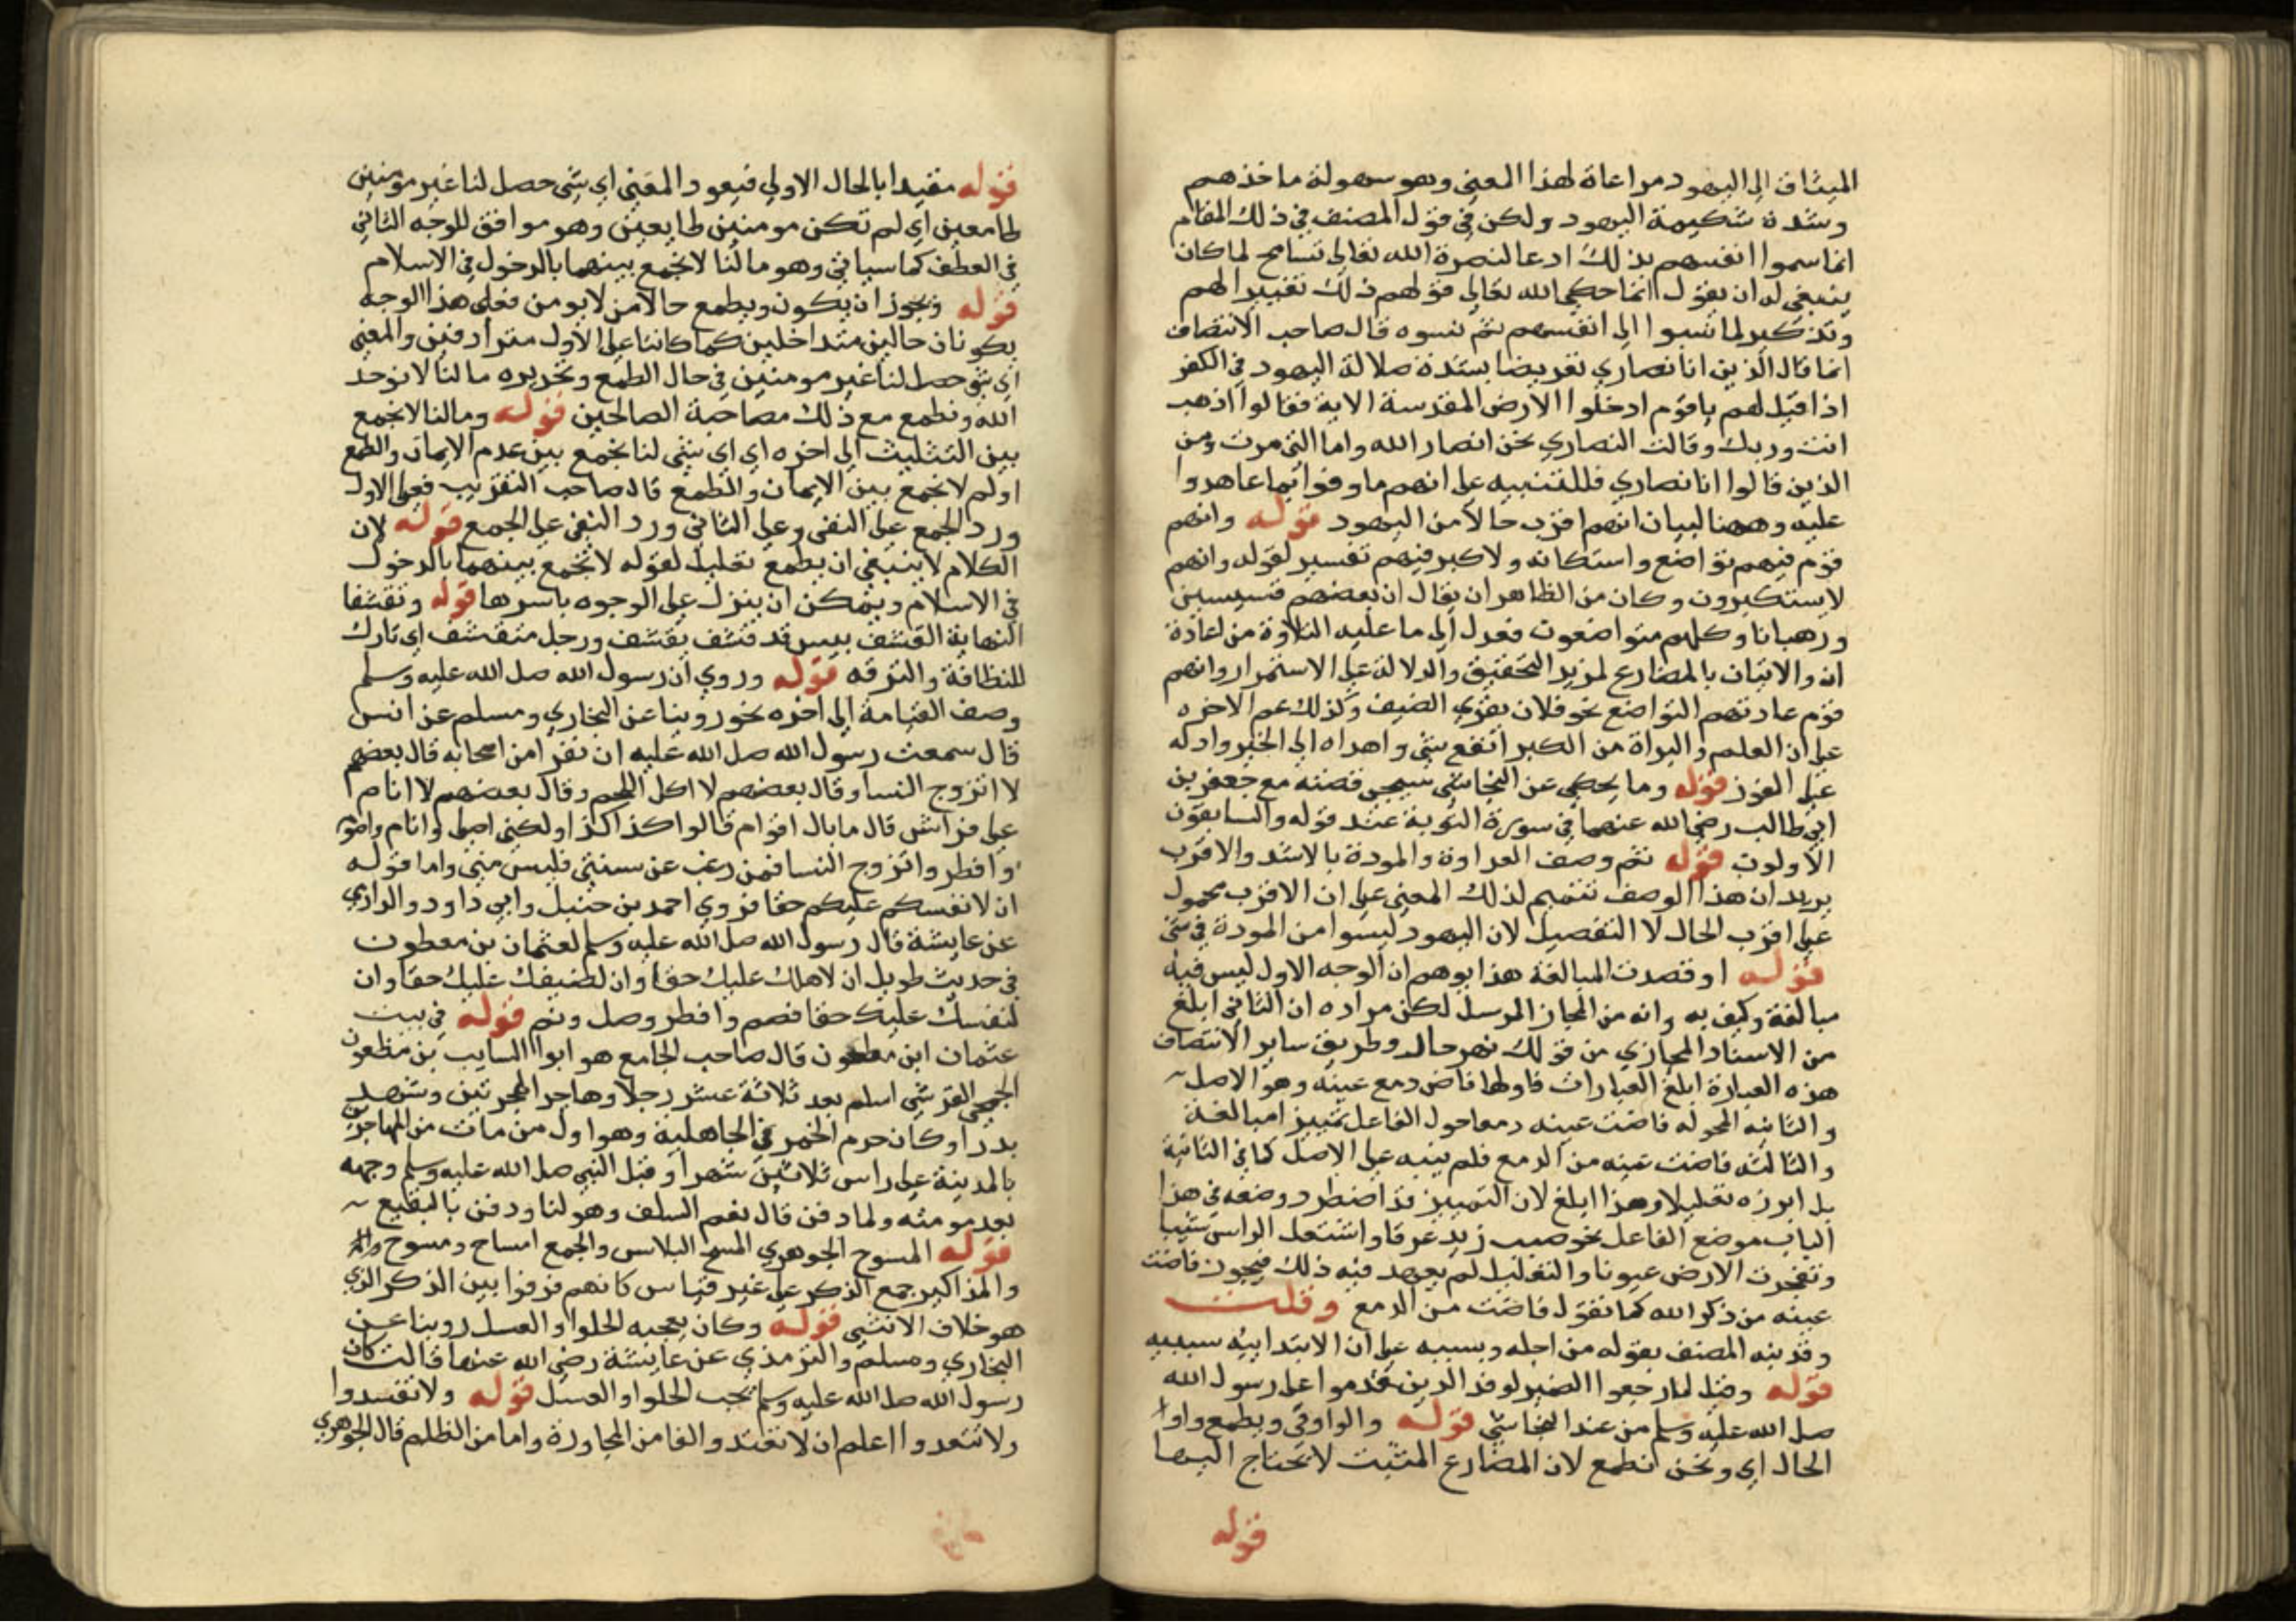 الميثاق الي اليهود مراعاة لهذا المعني وهو سهولة ماخذهم
وشدة شكيمة اليهود ولكن في قول المصنف في ذلك المقام
انما سموا انفسهم بذلك ادعا لنصرة الله تعالي تسامح لما كان
ينبغي له ان يقول انما حكي الله تعالي قولهم ذلك تغييرا لهم
وتذكير لما نسبوا الي انفسهم ثم نسوه قال صاحب الانتصاف
انما قال الذين انا نصاري تعريضا بشدة صلالة اليهود في الكفر
اذا قيل لهم ياقوم ادخلوا الارض المقدسة الاية فقالوا اذهب
انت وربك وقالت النصاري نحن انصار الله واما التي مرت ومن
الذين قالوا انا نصاري فللتنبيه علي انهم ما وفوا بما عاهدوا
عليه وههنا لبيان انهم اقرب حالا من اليهود قوله وانهم
قوم فيهم تواضع واستكانه ولا كبر فيهم تفسير لقوله وانهم
لا يستكبرون وكان من الظاهر ان يقال ان بعضهم قسيسين
ورهبانا وكلهم متواضعون فعدل الي ما عليه التلاوة من اعادة
ان والاتيان بالمضارع لمزيد التحقيق والدلالة علي الاستمرار وانهم
قوم عادتهم التواضع نحو فلان يقري الضيف وكذلك عم الاخره
علي ان العلم والبراة من الكبر انفع شي واهداه الي الخير وادله
علي الفوز قوله وما يحكي عن النجاشي سيجي قصته مع جعفر بن
ابي طالب رضي الله عنهما في سورة التوبة عند قوله والسابقون
الاولون قوله ثم وصف العداوة والمودة بالاشد والاقرب
يريد ان هذا الوصف تتميم لذلك المعني علي ان الاقرب محمول
علي اقرب الحال لا التفصيل لان اليهود ليسوا من المودة في شي
قوله او قصدت المبالغة هذا يوهم ان الوجه الاول ليس فيه
مبالغة وكيف به وانه من المجاز المرسل لكن مراده ان الثاني ابلغ
من الاسناد المجازي من قولك نهر حال وطريق ساير الانتصاف
هذه العبارة ابلغ العبارات فاولها فاض دمع عينه وهو الاصل
والثانيه المحوله فاضت عينه دمعا حول الفاعل تمييزا مبالغة
والثالثه فاضت عينه من الدمع فلم ينبه علي الاصل كما في الثانية
بل ابرزه تعليلا وهذا ابلغ لان التمييز قد اضطرد وضعه في هذا
الباب موضع الفاعل نحو صب زيد عرقا واشتعل الراس شيبا
وتفجرت الارض عيونا والتعليل لم يعهد فيه ذلك فيجوز فاضت
عينه من ذكر الله كما تقول فاضت من الدمع وقلت
وقد نبه المصنف بقوله من اجله وبسببه علي ان الابتداييه سببيه
قوله وقيل لما رجعوا الضمير لوفد الذين قدموا علي رسول الله
صلي الله عليه وسلم من عند النجاشي قوله والواو في ونطمع واو
الحال اي ونحن نطمع لان المضارع المثبت لا يحتاج اليها
قوله
قوله مقيدا بالحال الاولي فيعود المعني اي شي حصل لنا غير مومنين
طامعين اي لم نكن مومنين طايعين وهو موافق للوجه الثاني
في العطف كما سياتي وهو مالنا لا نجمع بينهما بالدخول في الاسلام
قوله ويجوز ان يكون ونطمع حالا من لا نومن فعلي هذا الوجه
يكونان حالين متداخلين كما كانتا علي الاول مترادفين والمعني
اي شي حصل لنا غير مومنين في حال الطمع وتحريره مالنا لا نوحد
الله ونطمع مع ذلك مصاحبة الصالحين قوله ومالنا لا نجمع
بين التثليث الي اخره اي اي شي لنا نجمع بين عدم الايمان والطمع
او لم لا نجمع بين الايمان والطمع قال صاحب التقريب فعلي الاول
ورد الجمع علي النفي وعلي الثاني ورد النفي علي الجمع قوله لان
الكلام لا ينبغي ان يطمع تعليل لقوله لا نجمع بينهما بالدخول
في الاسلام ويمكن ان ينزل علي الوجوه باسرها قوله وتقشفا
النهاية القشف يبس قد قشف يقشف ورجل متقشف اي تارك
للنظافة والترفه قوله وروي ان رسول الله صلي الله عليه وسلم
وصف القيامة الي اخره نحو روينا عن البخاري ومسلم عن انس
قال سمعت رسول الله صلي الله عليه ان نفرا من اصحابه قال بعضهم
لا اتزوج النسا وقال بعضهم لا اكل اللحم وقال بعضهم لا انام
علي فراش قال ما بال اقوام قالوا كذا كذا ولكني اصلي وانام واصوم
وافطر واتزوج النسا فمن رغب عن سنتي فليس مني واما قوله
ان لانفسكم عليكم حقا فروي احمد بن حنبل وابي داود والدارمي
عن عايشة قال رسول الله صلي الله عليه وسلم لعثمان بن معطون
في حديث طويل ان لاهلك عليك حقا وان لضيفك عليك حقا وان
لنفسك عليك حقا فصم وافطر وصل ونم قوله في بيت
عثمان ابن مظعون قال صاحب الجامع هو ابو السايب بن مظعون
الجمحي القرشي اسلم بعد ثلاثة عشر رجلا وهاجر الهجرتين وشهد
بدرا وكان حرم الخمر في الجاهلية وهو اول من مات من المهاجرين
بالمدينة علي راس ثلاثين شهرا وقبل النبي صلي الله عليه وسلم وجهه
بعد موته ولما دفن قال نعم السلف وهو لنا ودفن بالبقيع
قوله المسوح الجوهري المسح البلاس والجمع امساح ومسوح
والمذاكير جمع الذكر علي غير قياس كانهم فرقوا بين الذكر الذي
هو خلاف الانثي قوله وكان يعجبه الحلوا والعسل روينا عن
البخاري ومسلم والترمذي عن عايشة رضي الله عنها قالت كان
رسول الله صلي الله عليه وسلم يحب الحلوا والعسل قوله ولا تعتدوا
ولا تتعدوا اعلم ان لا تعتدوا اما من المجاوزة واما من الظلم قال الجوهري